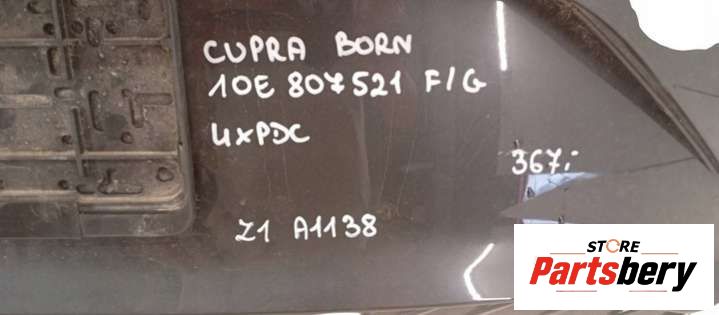 CUPRA BORN
10E 807521 F/G
4xPDC
367,-
Z1 A1138
STORE
Partsbery